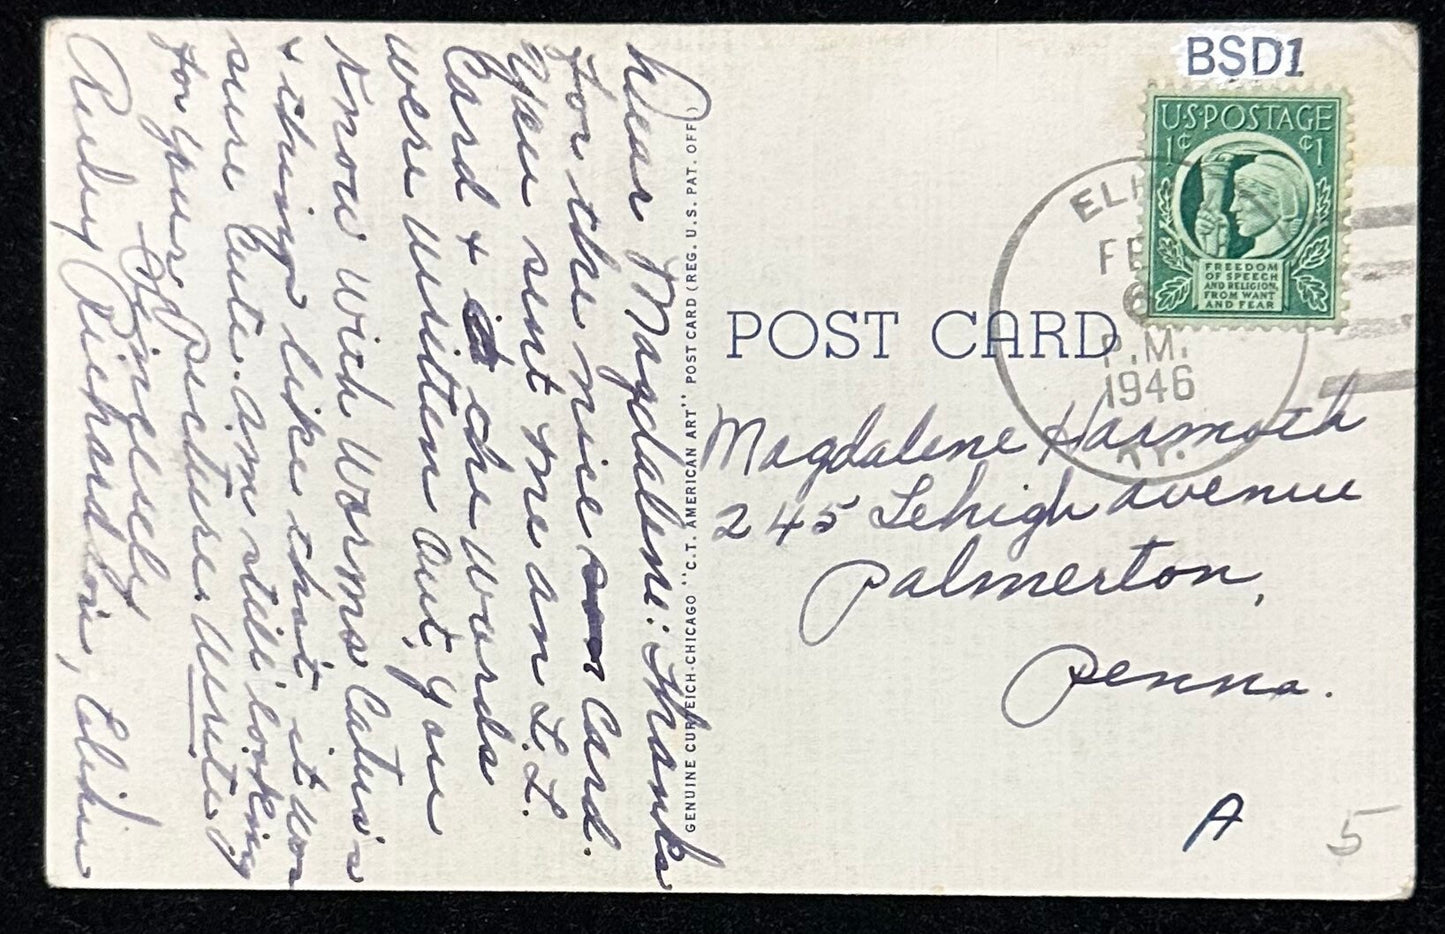 Dear Magdalene: Thanks
for the nice Card.
You sent me an L.L.
Card & the words
were written out, you
know with Worms Catus's
& things like that, it was
sure Cute. Am still looking
for your picture. Write
Sincerely
Ruby Richardson, Elihu
GENUINE CURTEICH-CHICAGO "C.T. AMERICAN ART" POST CARD (REG. U.S. PAT. OFF.)
BSD1
U.S. POSTAGE
1¢ ¢1
FREEDOM
OF SPEECH
AND RELIGION,
FROM WANT
AND FEAR
FE
6
P.M.
1946
KY.
POST CARD
Magdalene Harmoth
245 Lehigh Avenue
Palmerton,
Penna.
A
5